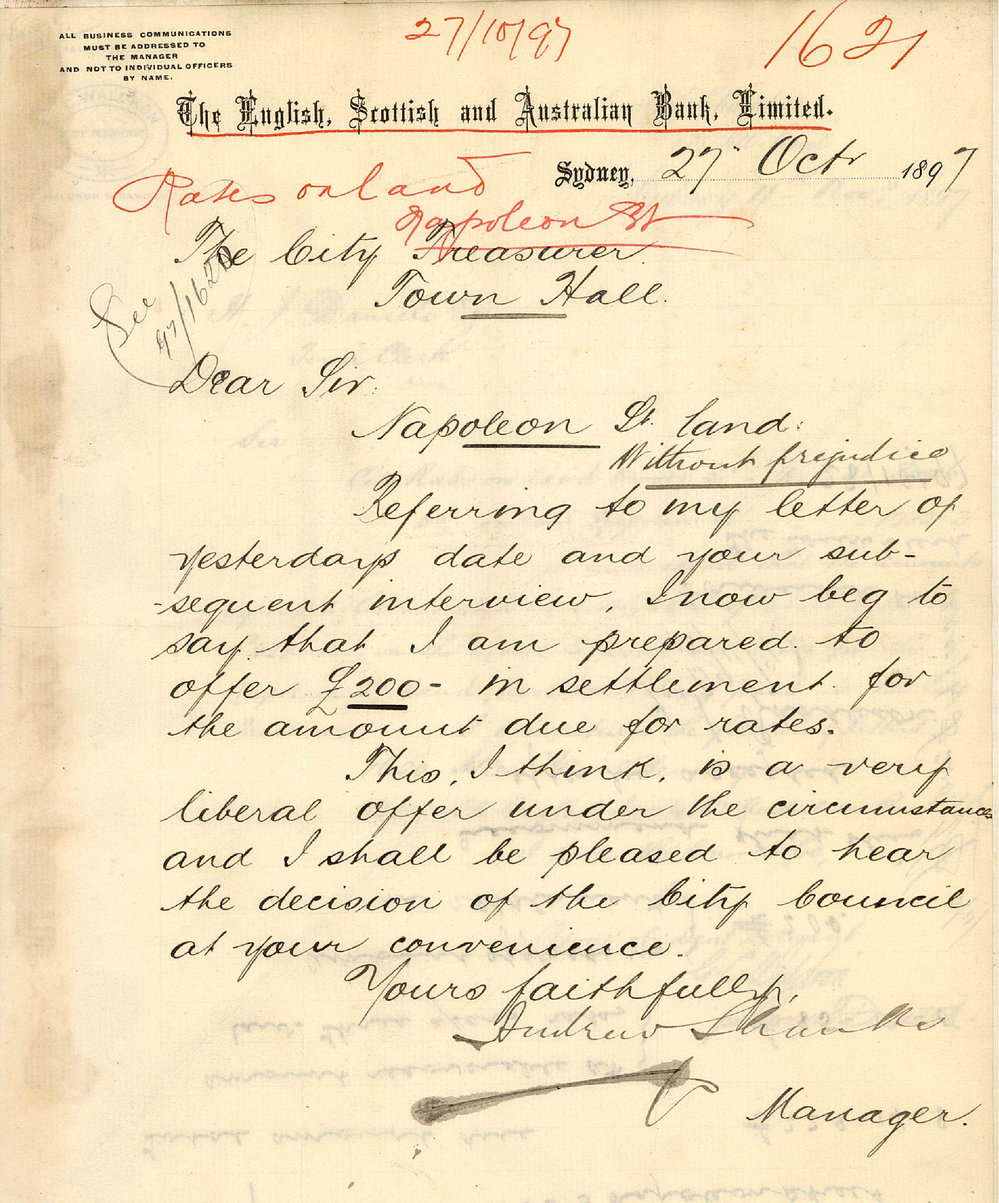 27/10/97
1621
ALL BUSINESS COMMUNICATIONS
MUST BE ADDRESSED TO
THE MANAGER
AND NOT TO INDIVIDUAL OFFICERS
BY NAME.
The English, Scottish and Australian Bank, Limited.
Sydney, 27 Octr 1897
Rates on land
Napoleon St
The City Treasurer
Town Hall.
See
97/1620
Dear Sir:
Napoleon St. land:
Without prejudice
Referring to my letter of
yesterdays date and your sub-
-sequent interview, I now beg to
say that I am prepared to
offer £200- in settlement for
the amount due for rates.
This, I think, is a very
liberal offer under the circumstances
and I shall be pleased to hear
the decision of the City Council
at your convenience.
Yours faithfully,
Andrew Shanks
Manager.